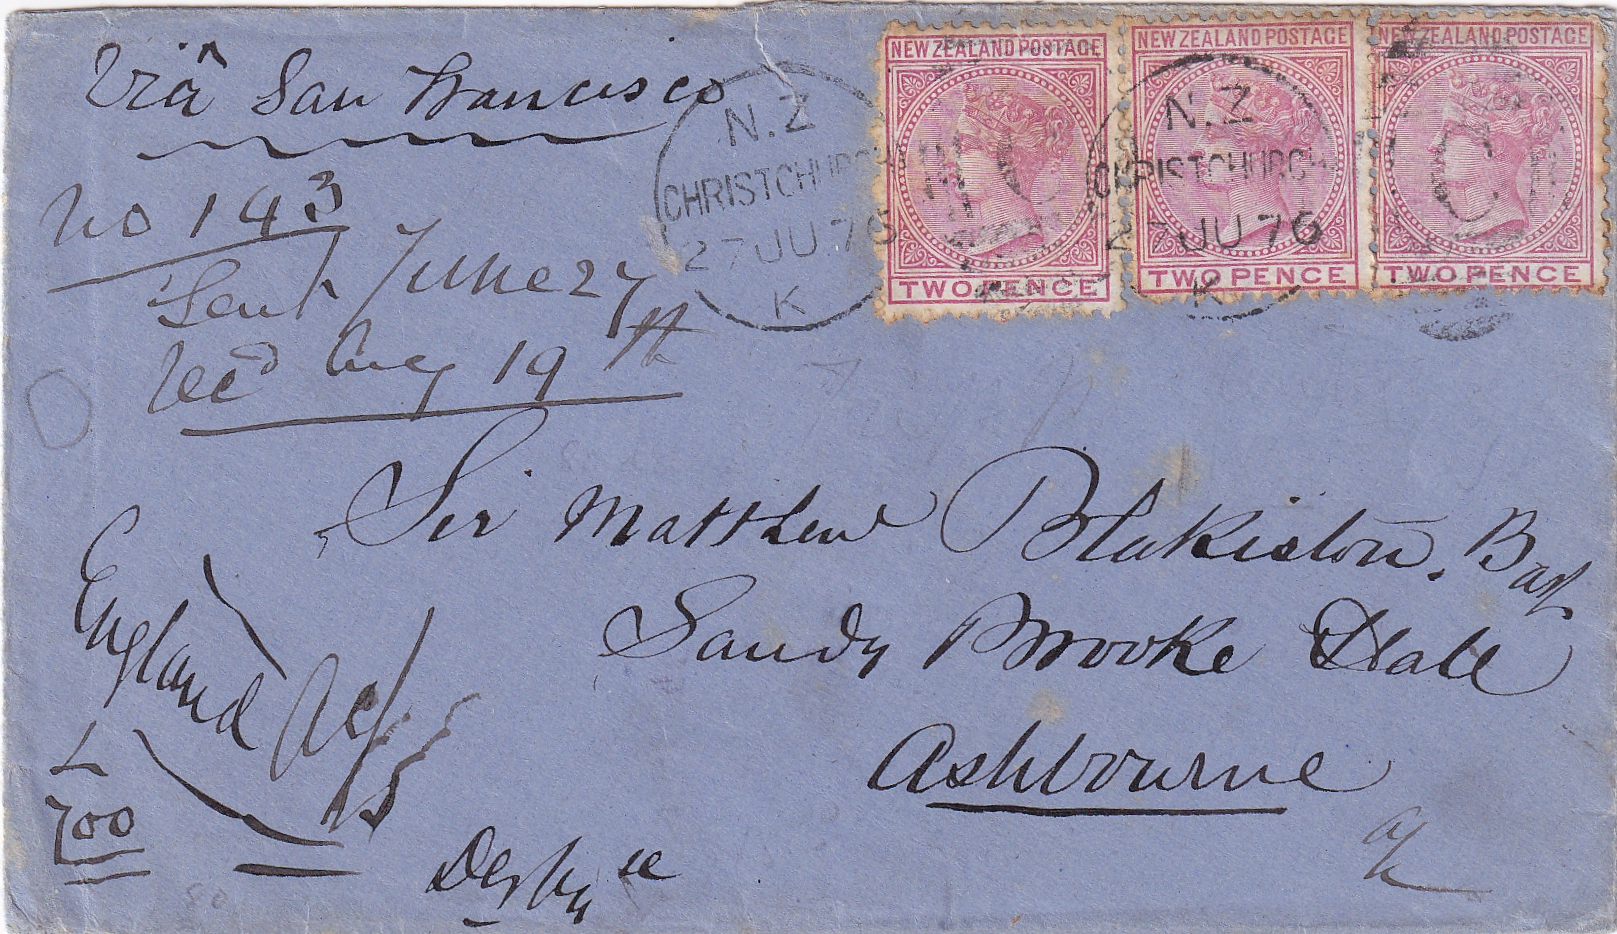 Viâ San Francisco
No 143
Sent June 27
Recd Aug 19th
NEW ZEALAND POSTAGE
TWO PENCE
NEW ZEALAND POSTAGE
TWO PENCE
NEW ZEALAND POSTAGE
TWO PENCE
N.Z
CHRISTCHURCH
27 JU 76
K
N.Z
CHRISTCHURCH
27 JU 76
K
Sir Matthew Blakiston. Bart
Sandy Brooke Hall
Ashbourne
Derby
England
L
700